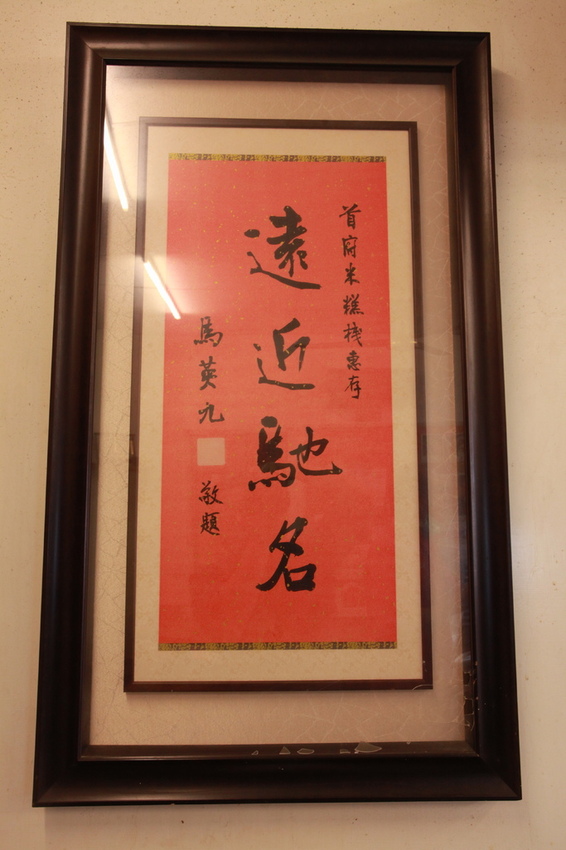 首府米糕棧惠存
遠近馳名
馬英九 敬題